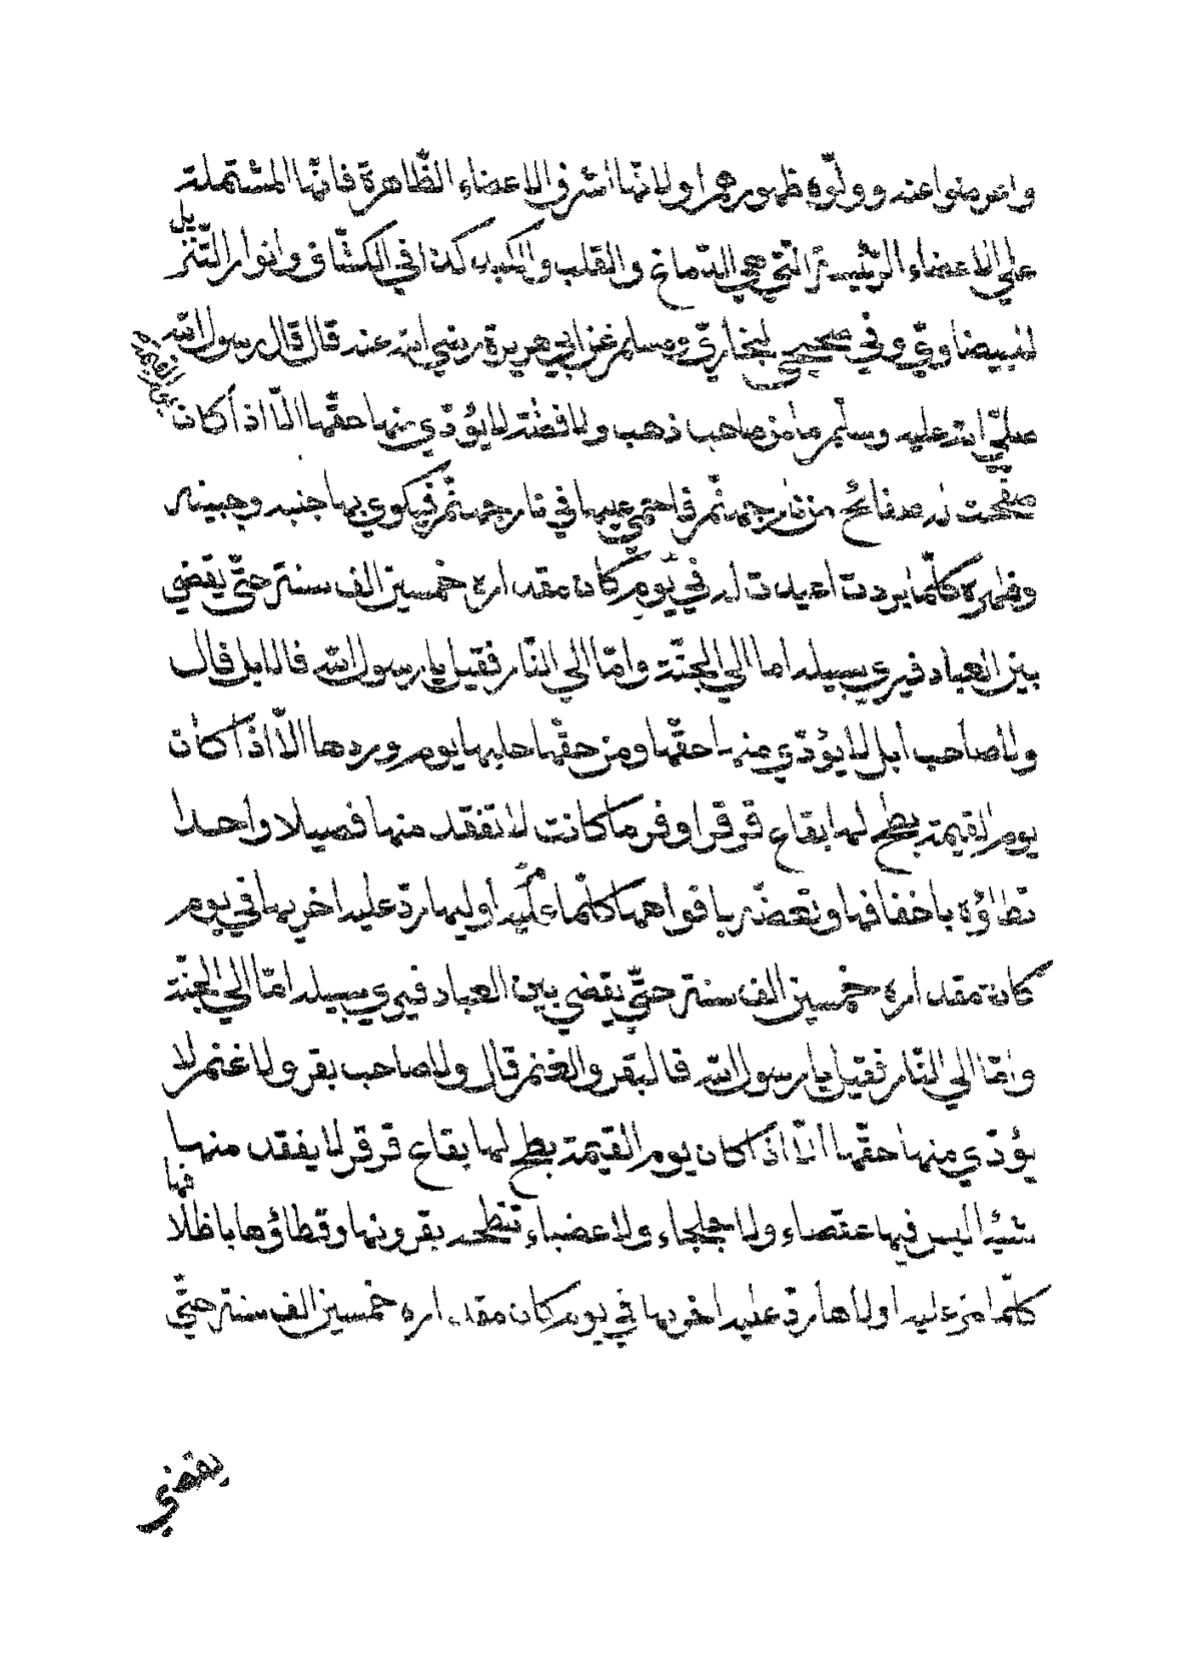 واعرضوا عنه وولّوه ظهورهم او لانّها اشرف الاعضاء الظّاهرة فانّها المشتملة
على الاعضاء الرئيسة الّتي هي الدّماغ والقلب والكبد كذا في الكشّاف وانوار التّنزيل
للبيضاوي وفي صحيحي لبخاري ومسلم عن ابي هريرة رضي الله عنه قال قال رسول الله
صلّى الله عليه وسلّم ما من صاحب ذهب ولا فضّة لا يؤدّي منها حقّها الّا اذا كان
صفّحت له صفائح من نار جهنّم فاحمي عليها في نار جهنّم فيكوي بها جنبه وجبينه
وظهره كلّما بردت اعيدت له في يوم كان مقداره خمسين الف سنة حتّى يقضي
بين العباد فيري سبيله اما الي الجنّة وامّا الي النّار فقيل يا رسول الله فالابل قال
ولا صاحب ابل لا يؤدّي منها حقّها ومن حقّها حلبها يوم وردها الّا اذا كان
يوم القيمة بطح لها بقاع قرقر اوفر ما كانت لا تفقد منها فصيلا واحدا
تطاؤه باخفافها وتعضّه بافواهها كلّما مر عليه اوليها ردّ عليه اخريها في يوم
كان مقداره خمسين الف سنة حتّى يقضي بين العباد فيري سبيله امّا الي الجنّة
وامّا الي النّار فقيل يا رسول الله فالبقر والغنم قال ولا صاحب بقر ولا غنم لا
يؤدّي منها حقّها الّا اذا كان يوم القيمة بطح لها بقاع قرقر لا يفقد منها
شيئا ليس فيها عقصاء ولا جلجاء ولا عضباء تنطحه بقرونها وتطاؤها باظلافها
كلّما مر عليه اولاها ردّ عليه اخريها في يوم كان مقداره خمسين الف سنة حتّى
يقضي